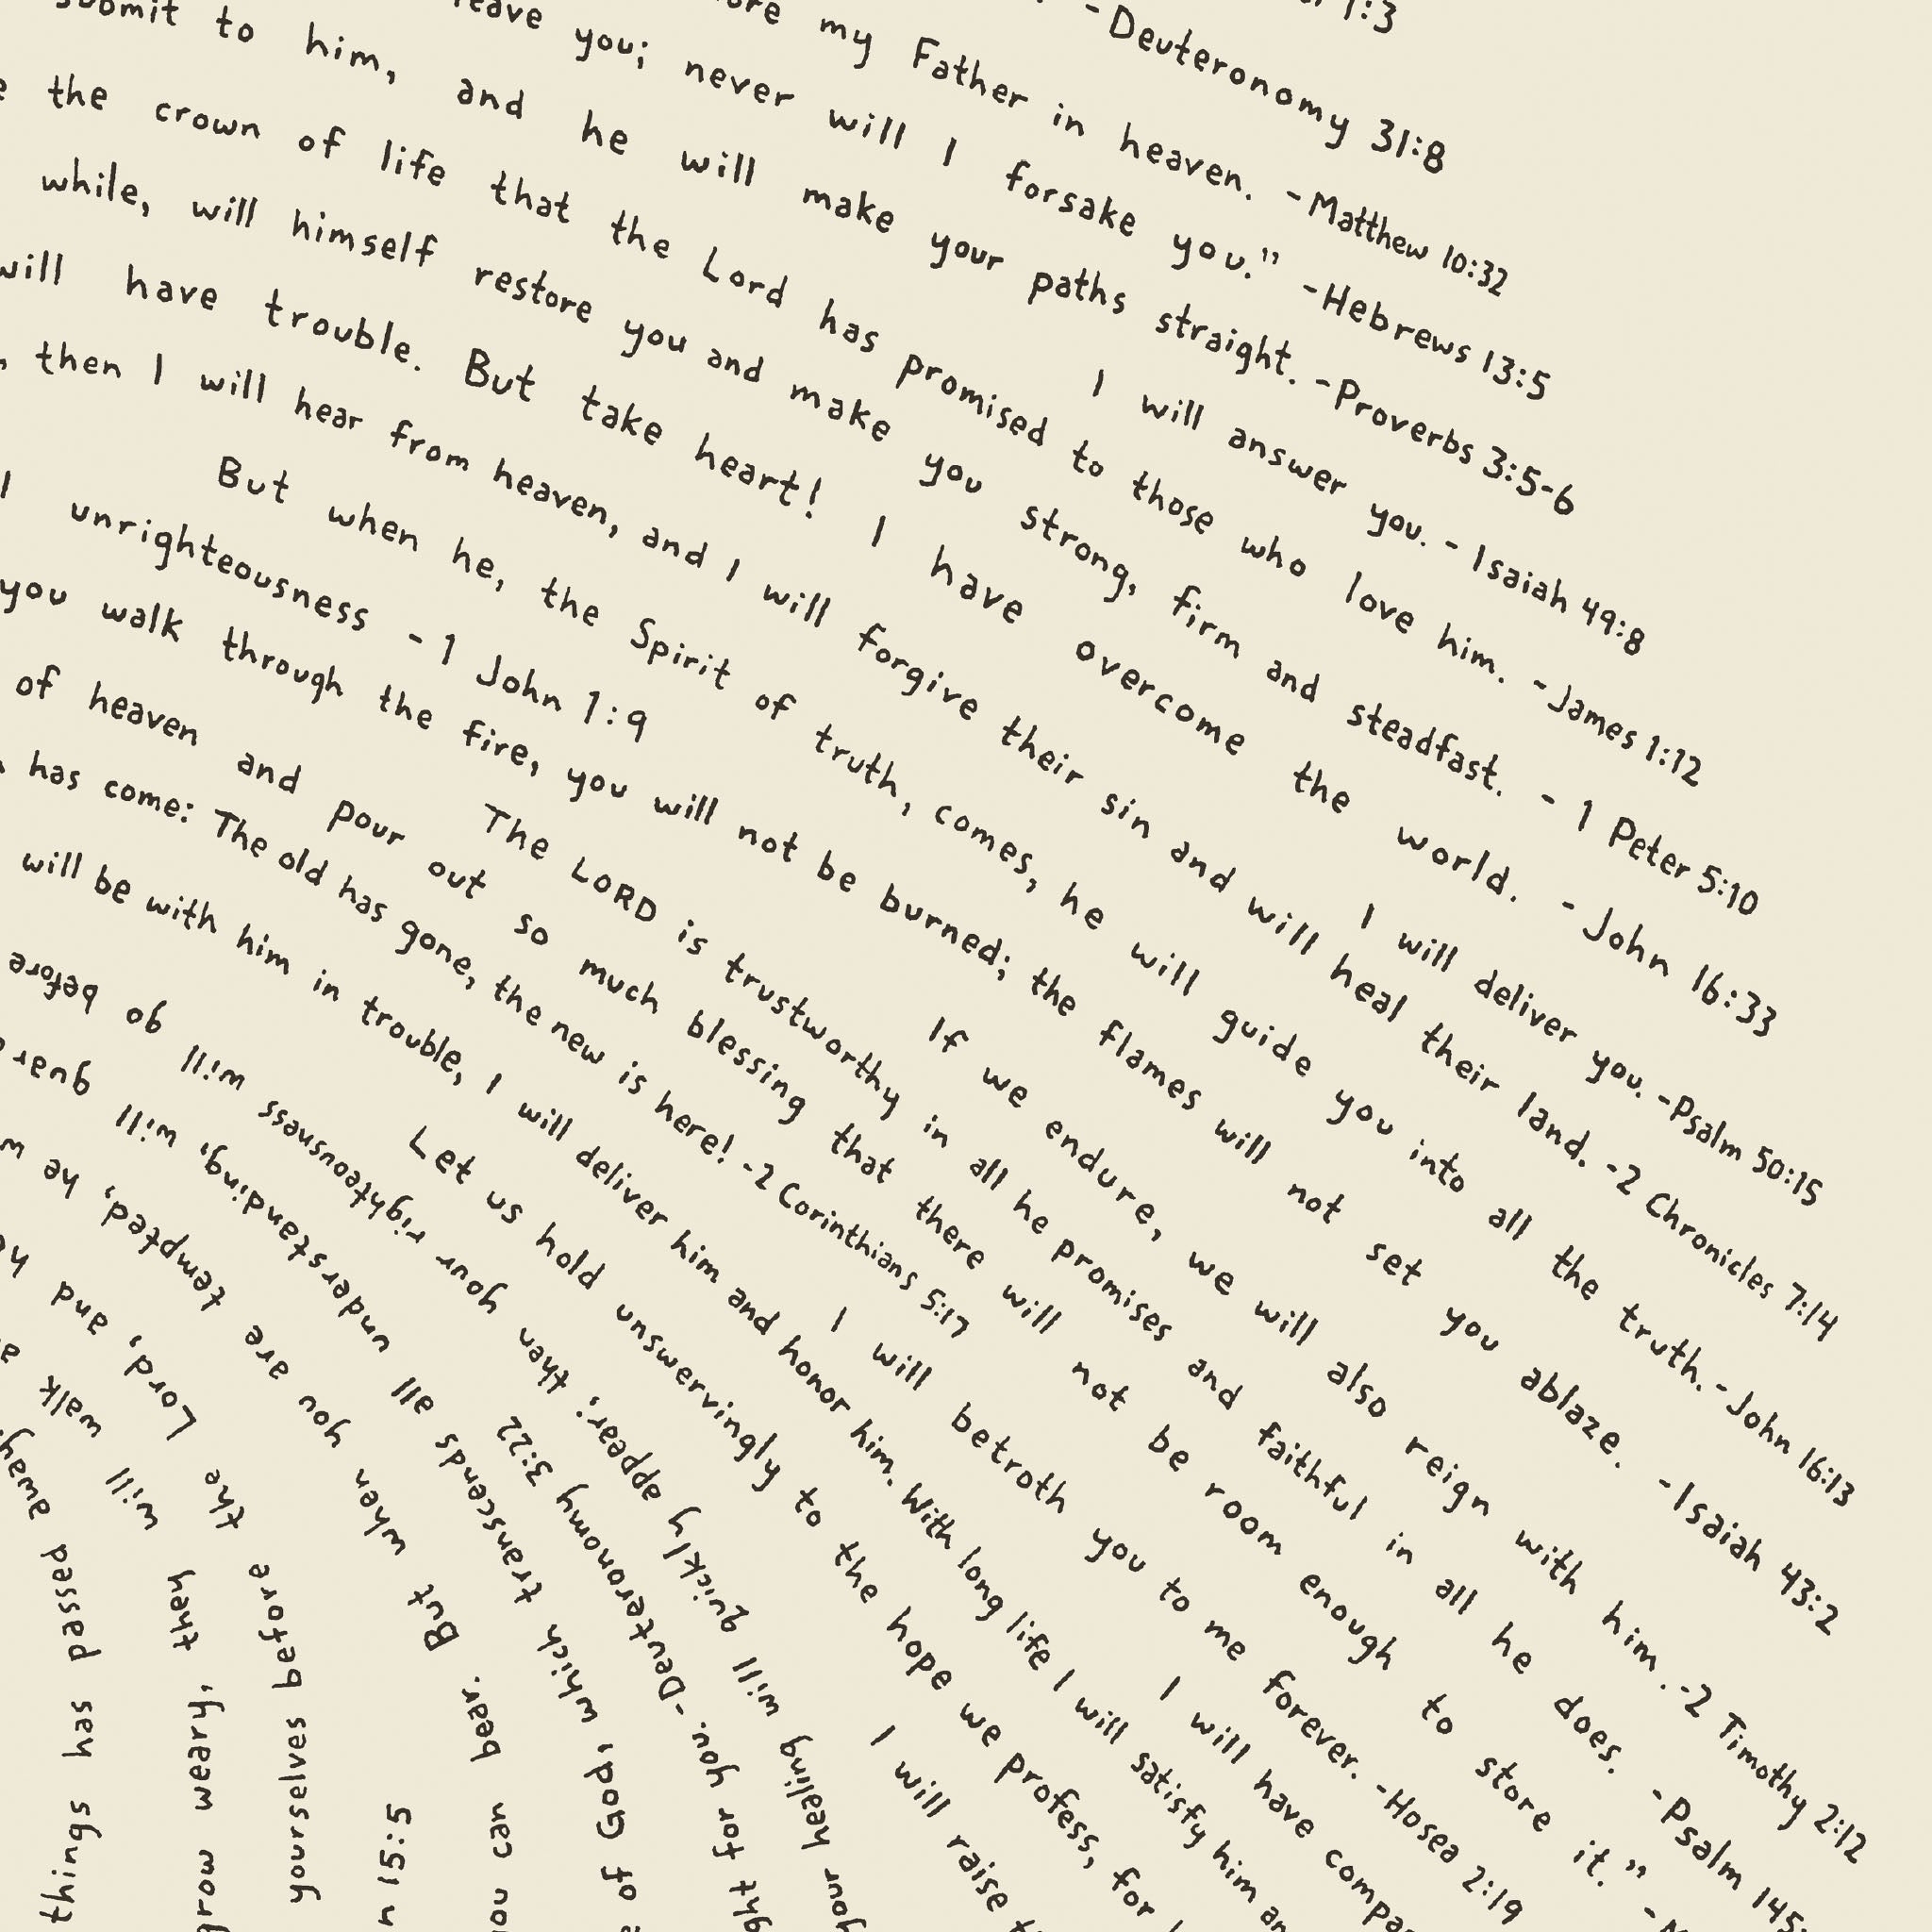 1:3
-Deuteronomy 31:8
my Father in heaven. -Matthew 10:32
you; never will I forsake you.” -Hebrews 13:5
to him, and he will make your paths straight. -Proverbs 3:5-6
I will answer you. - Isaiah 49:8
the crown of life that the Lord has promised to those who love him. -James 1:12
while, will himself restore you and make you strong, firm and steadfast. - 1 Peter 5:10
will have trouble. But take heart! I have overcome the world. -John 16:33
I will deliver you. -Psalm 50:15
, then I will hear from heaven, and I will forgive their sin and will heal their land. -2 Chronicles 7:14
But when he, the Spirit of truth, comes, he will guide you into all the truth. -John 16:13
unrighteousness - 1 John 1:9
you walk through the fire, you will not be burned; the flames will not set you ablaze. -Isaiah 43:2
If we endure, we will also reign with him. -2 Timothy 2:12
The LORD is trustworthy in all he promises and faithful in all he does. -Psalm 145:
of heaven and pour out so much blessing that there will not be room enough to store it.” -
has come: The old has gone, the new is here! -2 Corinthians 5:17
I will betroth you to me forever. -Hosea 2:19
I will have
will be with him in trouble, I will deliver him and honor him. With long life I will satisfy him
Let us hold unswervingly to the hope we profess, for
I will raise
healing will quickly appear; then your righteousness will go before
for you. -Deuteronomy 3:22
of God, which transcends all understanding, will
can bear. But when you are tempted, he
15:5
yourselves before the Lord, and
grow weary, they will walk
things has passed